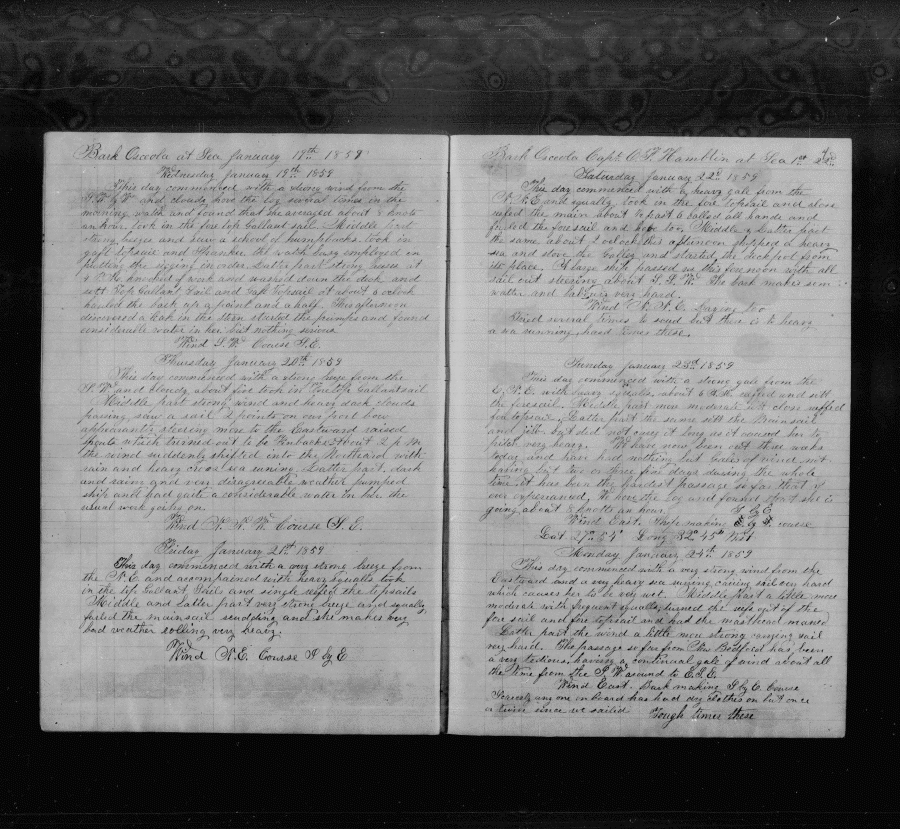 Bark Osceola at Sea January 19th 1859
Wednesday January 19th 1859
This day commenced with a strong wind from the
S.W. by W and cloudy hove the log several times in the
morning watch and found that she averaged about 8 knots
an hour took in the fore top Gallant sail. Middle part
strong breeze and saw a school of humpbacks. took in
gaft topsail and Spanker the watch busy employed in
putting the rigging in order. Latter part strong breeze at
4 O'Clk knocked of work and washed down the deck and
sett Top Gallant Sail and Gaft Topsail at about 6 oclock
hauled the back up a point and a half. This afternoon
discovered a leak in the stern started the pumps and found
considerable water in her but nothing serious
Wind S.W. Course S.E.
Thursday January 20th 1859
This day commenced with a strong breeze from the
S.W. and cloudy about five took in Foretop Gallantsail
Middle part strong wind and heavy dark clouds
passing saw a sail 2 points on our port bow
apparently steering more to the Eastward raised
spouts which turned out to be Finbacks About 2 p m
the wind suddenly shifted into the Northard with
rain and heavy cross sea runing. Latter part dark
and rainy and very disagreeable weather pumped
ship and had quite a considerable water in her the
usual work going on.
Wind N. N. W. Course S. E.
Friday January 21st 1859
This day commenced with a very strong breeze from
the N.E. and accompained with heavy squalls took
in the top Gallant Sails and single reefed the topsails
Middle and Latter part very strong breeze and squally
furled the mainsail scudding and she makes very
bad weather rolling very heavy.
Wind N.E. Course S by E
Bark Osceola Capt O.P. Hamblin at Sea 1st
Saturday January 22d 1859
This day commenced with a heavy gale from the
N.N.E and squally, took in the fore topsail and close
reefed the main about ½ past 6 called all hands and
furled the foresail and hove too. Middle & Latter part
the same about 2 oclock this afternoon shipped a heavy
sea and stove the Galley and started the deckpot from
its place. A large ship passed us this forenoon with all
sail out steering about S.S.W. The bark makes some
water and labours very hard.
Wind N. N. E. Laying too
Tried several times to scud but there is to heavy
a sea running, hard times these.
Sunday January 23rd 1859
This day commenced with a strong gale from the
E.N.E. with heavy squalls, about 6 A.M. reefed and sett
the foresail. Middle part more moderate sett close reefed
fore topsail. Latter part the same sett the Mainsail
and jibb but did not carry it long as it caused her to
pitch very heavy. We have now been out three weeks
today and have had nothing but Gales of wind, not
having but two or three fine days during the whole
time it has been the hardest passage so far that I
ever experianced. We hove the log and found that she is
going about 8 knotts an hour. S by E
Wind East. Ship making S by E. course
Lat 27° 54' Long 32° 45" West
Monday January 24th 1859
This day commenced with a very strong wind from the
Eastward and a very heavy sea runing, carring sail very hard
which causes her to be very wet. Middle part a little more
moderate with frequent squalls, turned the reefs out of the
fore sail and fore topsail and had the masthead maned
Latter part the wind a little more strong carrying sail
very hard. The passage so far from New Bedford has been
a very tedious, having a continual gale of wind about all
the time from the S.W around to E.N.E.
Wind East. Bark making S by E. Course
Scarcely any one on board has had dry clothes on but once
or twice since we sailed Tough times these